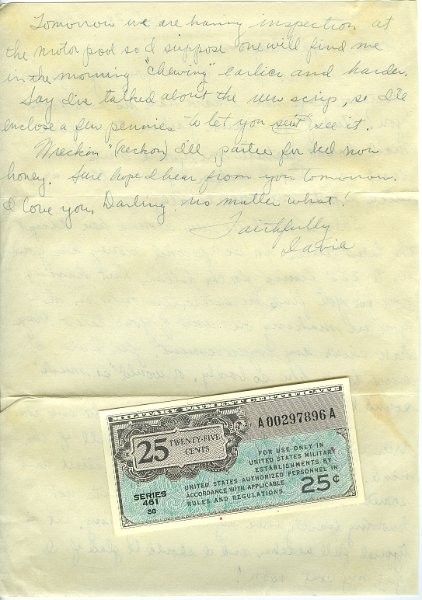 Tomorrow we are having inspection at
the motor pool so I suppose one will find me
in the morning "chewing" earlier and harder.
Say I've talked about the new scrip, so I'll
enclose a few pennies to let you see it.
Wreckin (reckon) I'll for bed now
honey. Sure hope I hear from you tomorrow.
I love you, Darling no matter what!
Faithfully
MILITARY PAYMENT CERTIFICATE
25 TWENTY-FIVE CENTS
A00297896A
FOR USE ONLY IN
UNITED STATES MILITARY
ESTABLISHMENTS BY
UNITED STATES AUTHORIZED PERSONNEL IN
ACCORDANCE WITH APPLICABLE
RULES AND REGULATIONS.
SERIES
461
25¢